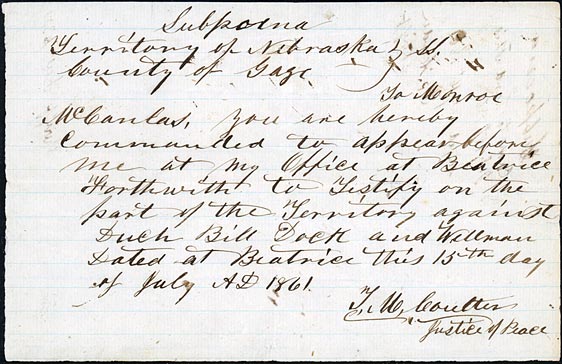 Subpoena
Territory of Nebraska } SS.
County of Gage
To Monroe
McCanlas, You are hereby
Commanded to appear before
me at my Office at Beatrice
Forthwith to Testify on the
part of the Territory against
Duch Bill Dock and Wellman
Dated at Beatrice this 15th day
of July AD 1861.
T. M. Coulter
Justice of Peace